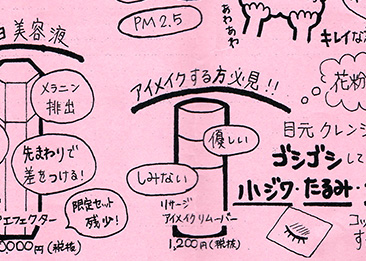 美容液
PM2.5
あわあわ
キレイな
メラニン
排出
アイメイクする方必見!!
花粉
先まわりで
差をつける!
優しい
しみない
目元クレン
ゴシゴシして
小ジワ・たるみ・
エフェクター
限定セット
残少!
リサージ
アイメイクリムーバー
0,000円(税抜)
1,200円(税抜)
コッ
す